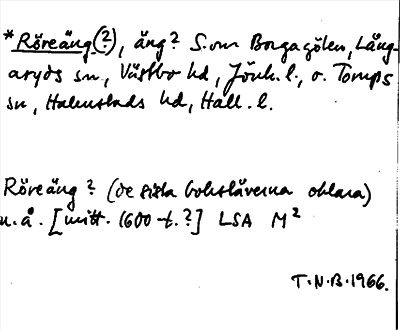 *Röreäng(?), äng? S. om Borgagölen, Lång-
aryds sn, Västbo hd, Jönk. l., o. Torups
sn, Halmstads hd, Hall. l.
Röreäng? (de sista bokstäverna oklara)
u.å. [mitt. 1600-t.?] LSA M²
T.N.B. 1966.